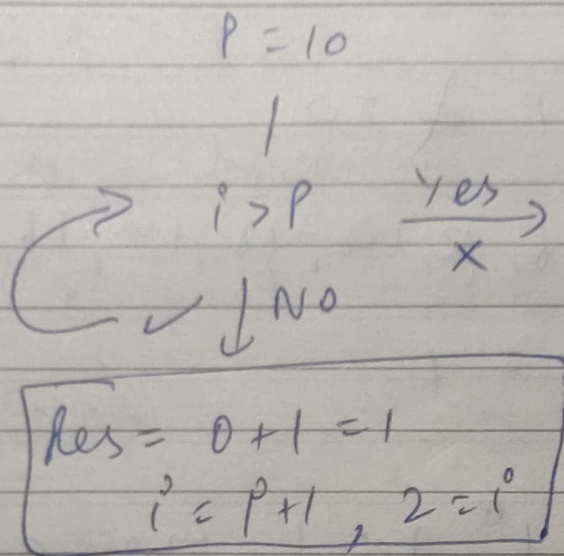 P = 10
i > P
Yes
X
NO
Res = 0 + 1 = 1
i = P+1, 2 = i